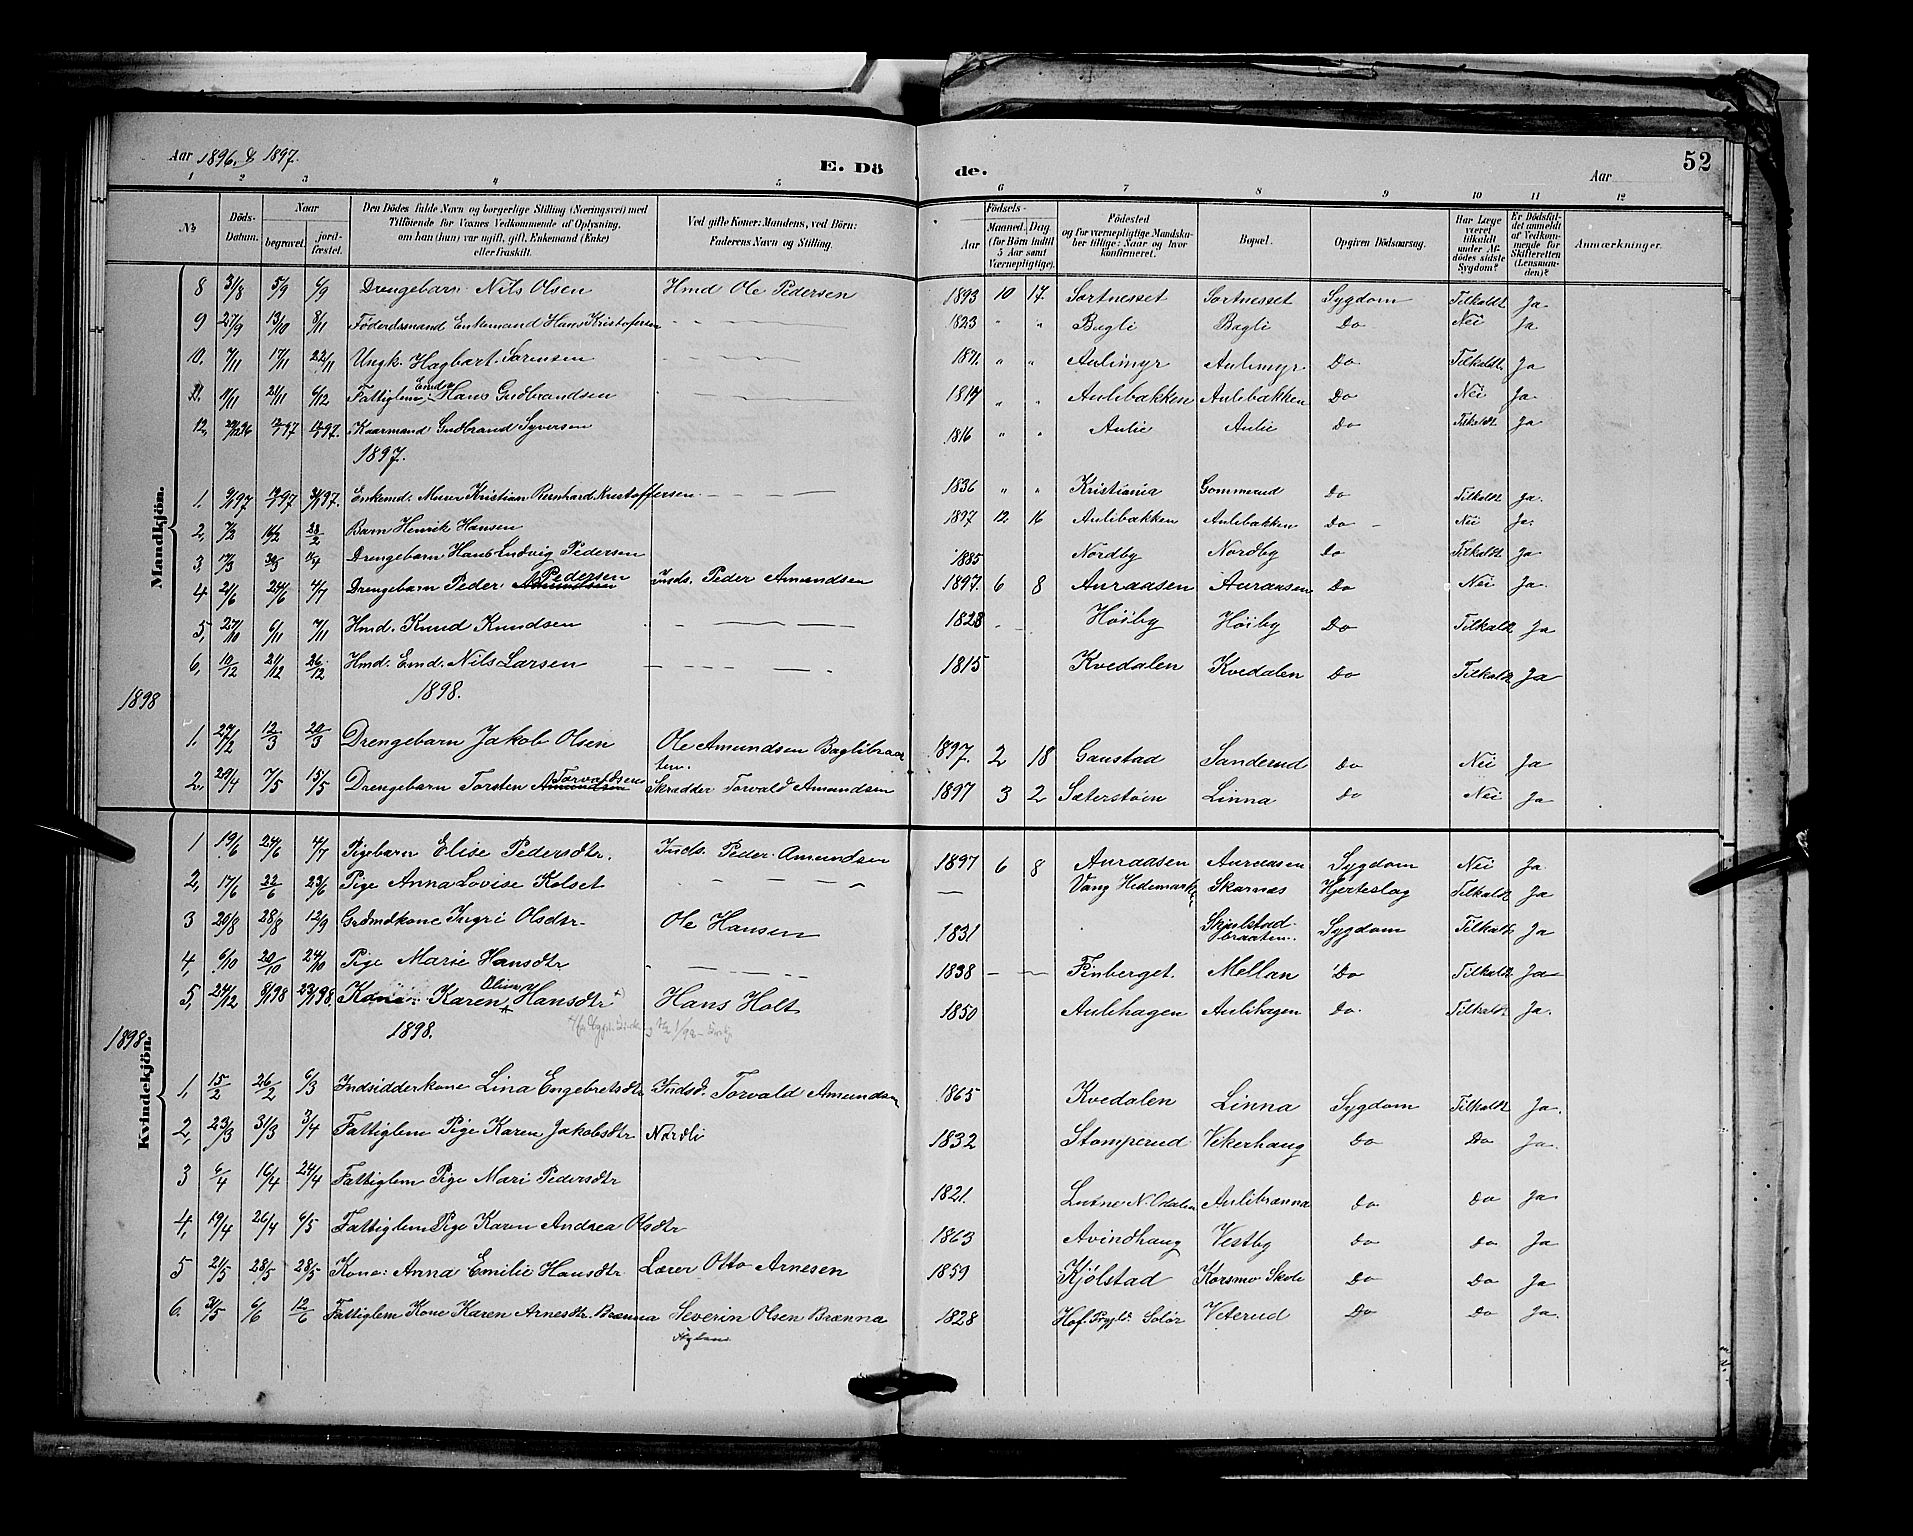 Aar 1896 & 1897.
E. Dö
de.
Aar
52
1 2 3 4 5 6 7 8 9 10 11 12
№
Döds-Datum.
Naar
begravet.
jord-fæstet.
Den Dödes fulde Navn og borgerlige Stilling (Næringsvei) med
Tilföiende for Voxnes Vedkommende af Oplysning,
om han (hun) var ugift, gift, Enkemand (Enke)
eller fraskilt.
Ved gifte Koner: Mandens, ved Börn:
Faderens Navn og Stilling.
Födsels-
Aar
Maaned, Dag
(for Börn indtil
5 Aar samt
Værnepligtige).
Födested
og for værnepligtige Mandska-
ber tillige: Naar og hvor
konfirmeret.
Bopæl.
Opgiven Dödsaarsag.
Har Læge
været
tilkaldt
under Af-
dödes sidste
Sygdom?
Er Dödsfal-
det anmeldt
af Vedkom-
mende for
Skifteretten
(Lensman-
den)?
Anmærkninger.
Mandkjön.
8 31/8 5/9 6/9 Drengebarn Nils Olsen Hmd Ole Pedersen 1893 10 17. Sortnesset Sortnesset Sygdom Tilkaldt Ja
9 27/9 13/10 8/11 Föderådsmand Enkemand Hans Kristofersen 1823 " " Bagli Bagli Do Nei Ja
10. 7/11 17/11 22/11 Ungk. Hagbart Sörensen 1871. " " Aulimyr Aulimyr Do Tilkaldt Ja
11. 11/11 21/11 6/12 Fattiglem, Emd. Hans Gudbrandsen 1817 " " Aulibakken Aulibakken Do Nei Ja
12, Kaarmand Gudbrand Syversen 1816 " " Aulie Aulie Do Tilkaldt Ja
1897.
1. Enkemd. Murer Kristian Reinhard Kristoffersen 1836 " " Kristiania Gommerud Do Tilkaldt Ja.
2, 7/2 16/2 28/2 Barn Henrik Hansen 1897 12 16 Aulibakken Aulibakken Do Nei Ja.
3, 17/3 30/3 Drengebarn Hans Ludvig Pedersen 1885 Nordby Nordby Do Tilkaldt Ja
4 21/6 24/6 4/7 Drengebarn Peder Amundsen Pedersen Inds. Peder Amundsen 1897. 6 8 Auraasen Auraasen Do Nei Ja.
5, 27/10 6/11 7/11 Hmd. Knud Knudsen 1828 Höiby Höiby Do Tilkaldt Ja
6, 10/12 21/12 26/12 Hmd. Emd. Nils Larsen 1815 Kvedalen Kvedalen Do Tilkaldt Ja
1898
1898.
1. 27/2 12/3 20/3 Drengebarn Jakob Olsen Ole Amundsen Baglibraa-
ten. 1897. 2 18 Ganstad Sanderud Do Nei Ja
2, 29/4 7/5 15/5 Drengebarn Torsten Amundsen Torvaldsen Skrædder Torvald Amundsen 1897 3 2 Sæterstöin Linna Do Nei Ja
Kvindekjön.
1 19/6 24/6 4/7 Pigebarn Elise Pedersdtr. Inds. Peder Amundsen 1897 6 8 Auraasen Auraasen Sygdom Nei Ja.
2, 17/6 22/6 23/6 Pige Anna Lovise Kolset Vang Hedemark Skarnæs Hjerteslag Tilkaldt Ja
3 20/8 28/8 12/9 Grdmdkone Ingri Olsdtr. Ole Hansen 1831 Skjulstad-
braaten. Sygdom Tilkaldt Ja
4, 6/10 20/10 24/10 Pige Marie Hansdtr 1838 Finberget. Mellan Do Tilkaldt Ja
5, 27/12 8/1 98 23/1 98. Kone: Karen Oline Hansdtr Hans Holt 1850 Aulihagen Aulihagen Do. Tilkaldt Ja.
1898
1898.
1, 15/2 26/2 6/3 Indsidderkone Lina Engebretsdtr Indsd. Torvald Amundsen 1865 Kvedalen Linna Sygdom Tilkaldt Ja.
2, 23/3 31/3 3/4 Fattiglem Pige Karen Jakobsdtr Nordli 1832 Stomperud Vekerhaug Do Do Ja.
3 6/4 16/4 24/4 Fattiglem Pige Mari Pedersdtr 1821. N. Odalen Aulibrænna Do Do Ja
4, 19/4 26/4 6/5 Fattiglem Pige Karen Andrea Olsdtr 1863 Avindhaug Vestby Do Do Ja
5 21/5 28/5 28/5 Kone: Anna Emilie Hansdtr Lærer Otto Arnesen 1859 Kjölstad Korsmo Skole Do Do Ja
6. 31/5 6/6 12/6 Fattiglem Kone Karen Arnesdtr. Brænna Severin Olsen Brænna 1828 Hof Prgjld. Solör Veterud Do Do Ja.